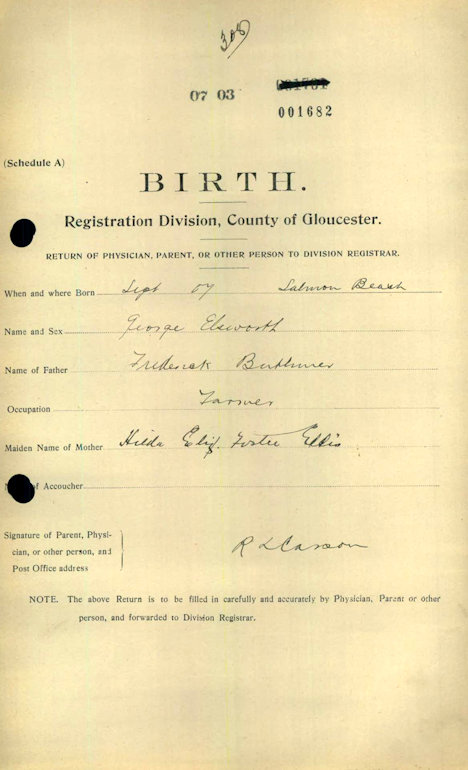 308
07 03
001682
(Schedule A)
BIRTH.
Registration Division, County of Gloucester.
RETURN OF PHYSICIAN, PARENT, OR OTHER PERSON TO DIVISION REGISTRAR.
When and where Born Sept 07 Salmon Beach
Name and Sex George Elsworth
Name of Father Frederick
Occupation Farmer
Maiden Name of Mother Hilda Eliz. Foster Ellis
of Accoucher
Signature of Parent, Physi-
cian, or other person, and
Post Office address
R L Carson
NOTE. The above Return is to be filled in carefully and accurately by Physician, Parent or other
person, and forwarded to Division Registrar.